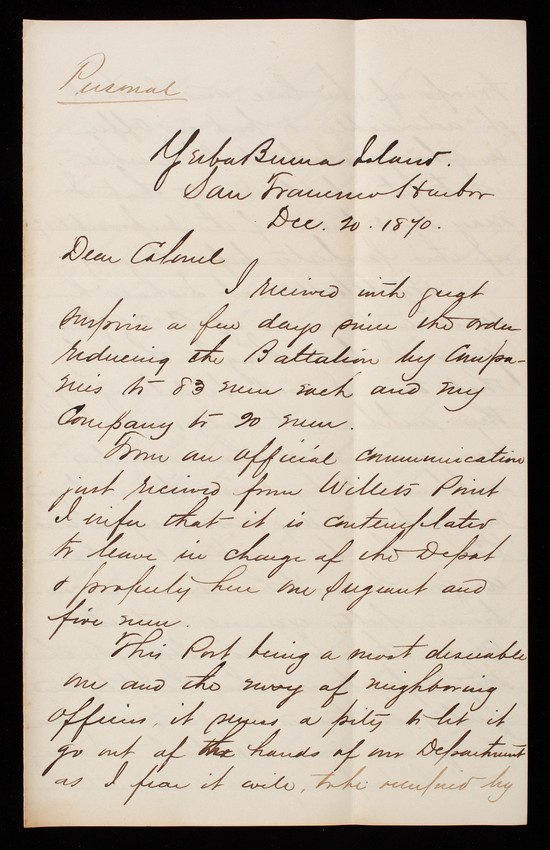 Personal
Yerba Buena Island.
San Francisco Harbor
Dec. 20. 1870.
Dear Colonel
I received with great
surprise a few days since the order
reducing the Battalion by Compa-
nies to 83 men each and my
Company to 20 men.
From an official communication
just received from Willets Point
I infer that it is contemplated
to leave in charge of the Depot
& property here one Sergeant and
five men.
This Post being a most desirable
one and the envy of neighboring
officers, it seems a pity to let it
go out of the hands of our Department
as I fear it will, to be occupied by